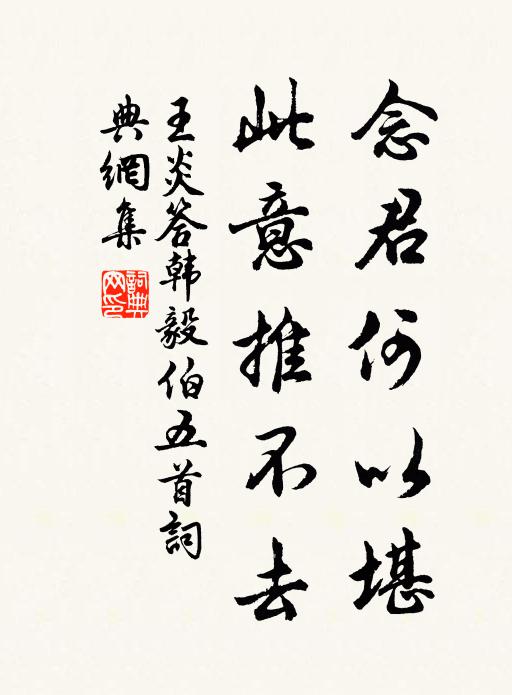 念君何以堪
此意推不去
王炎答韩毅伯五首詞
典網集
詞典
网印